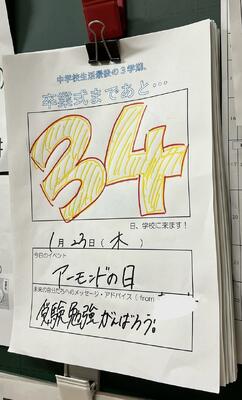 中学校生活最後の3学期。
卒業式まであと…
34
日、学校に来ます!
1月23日(木)
今日のイベント
アーモンドの日
未来の自分たちへのメッセージ・アドバイス(from
受験勉強がんばろう。